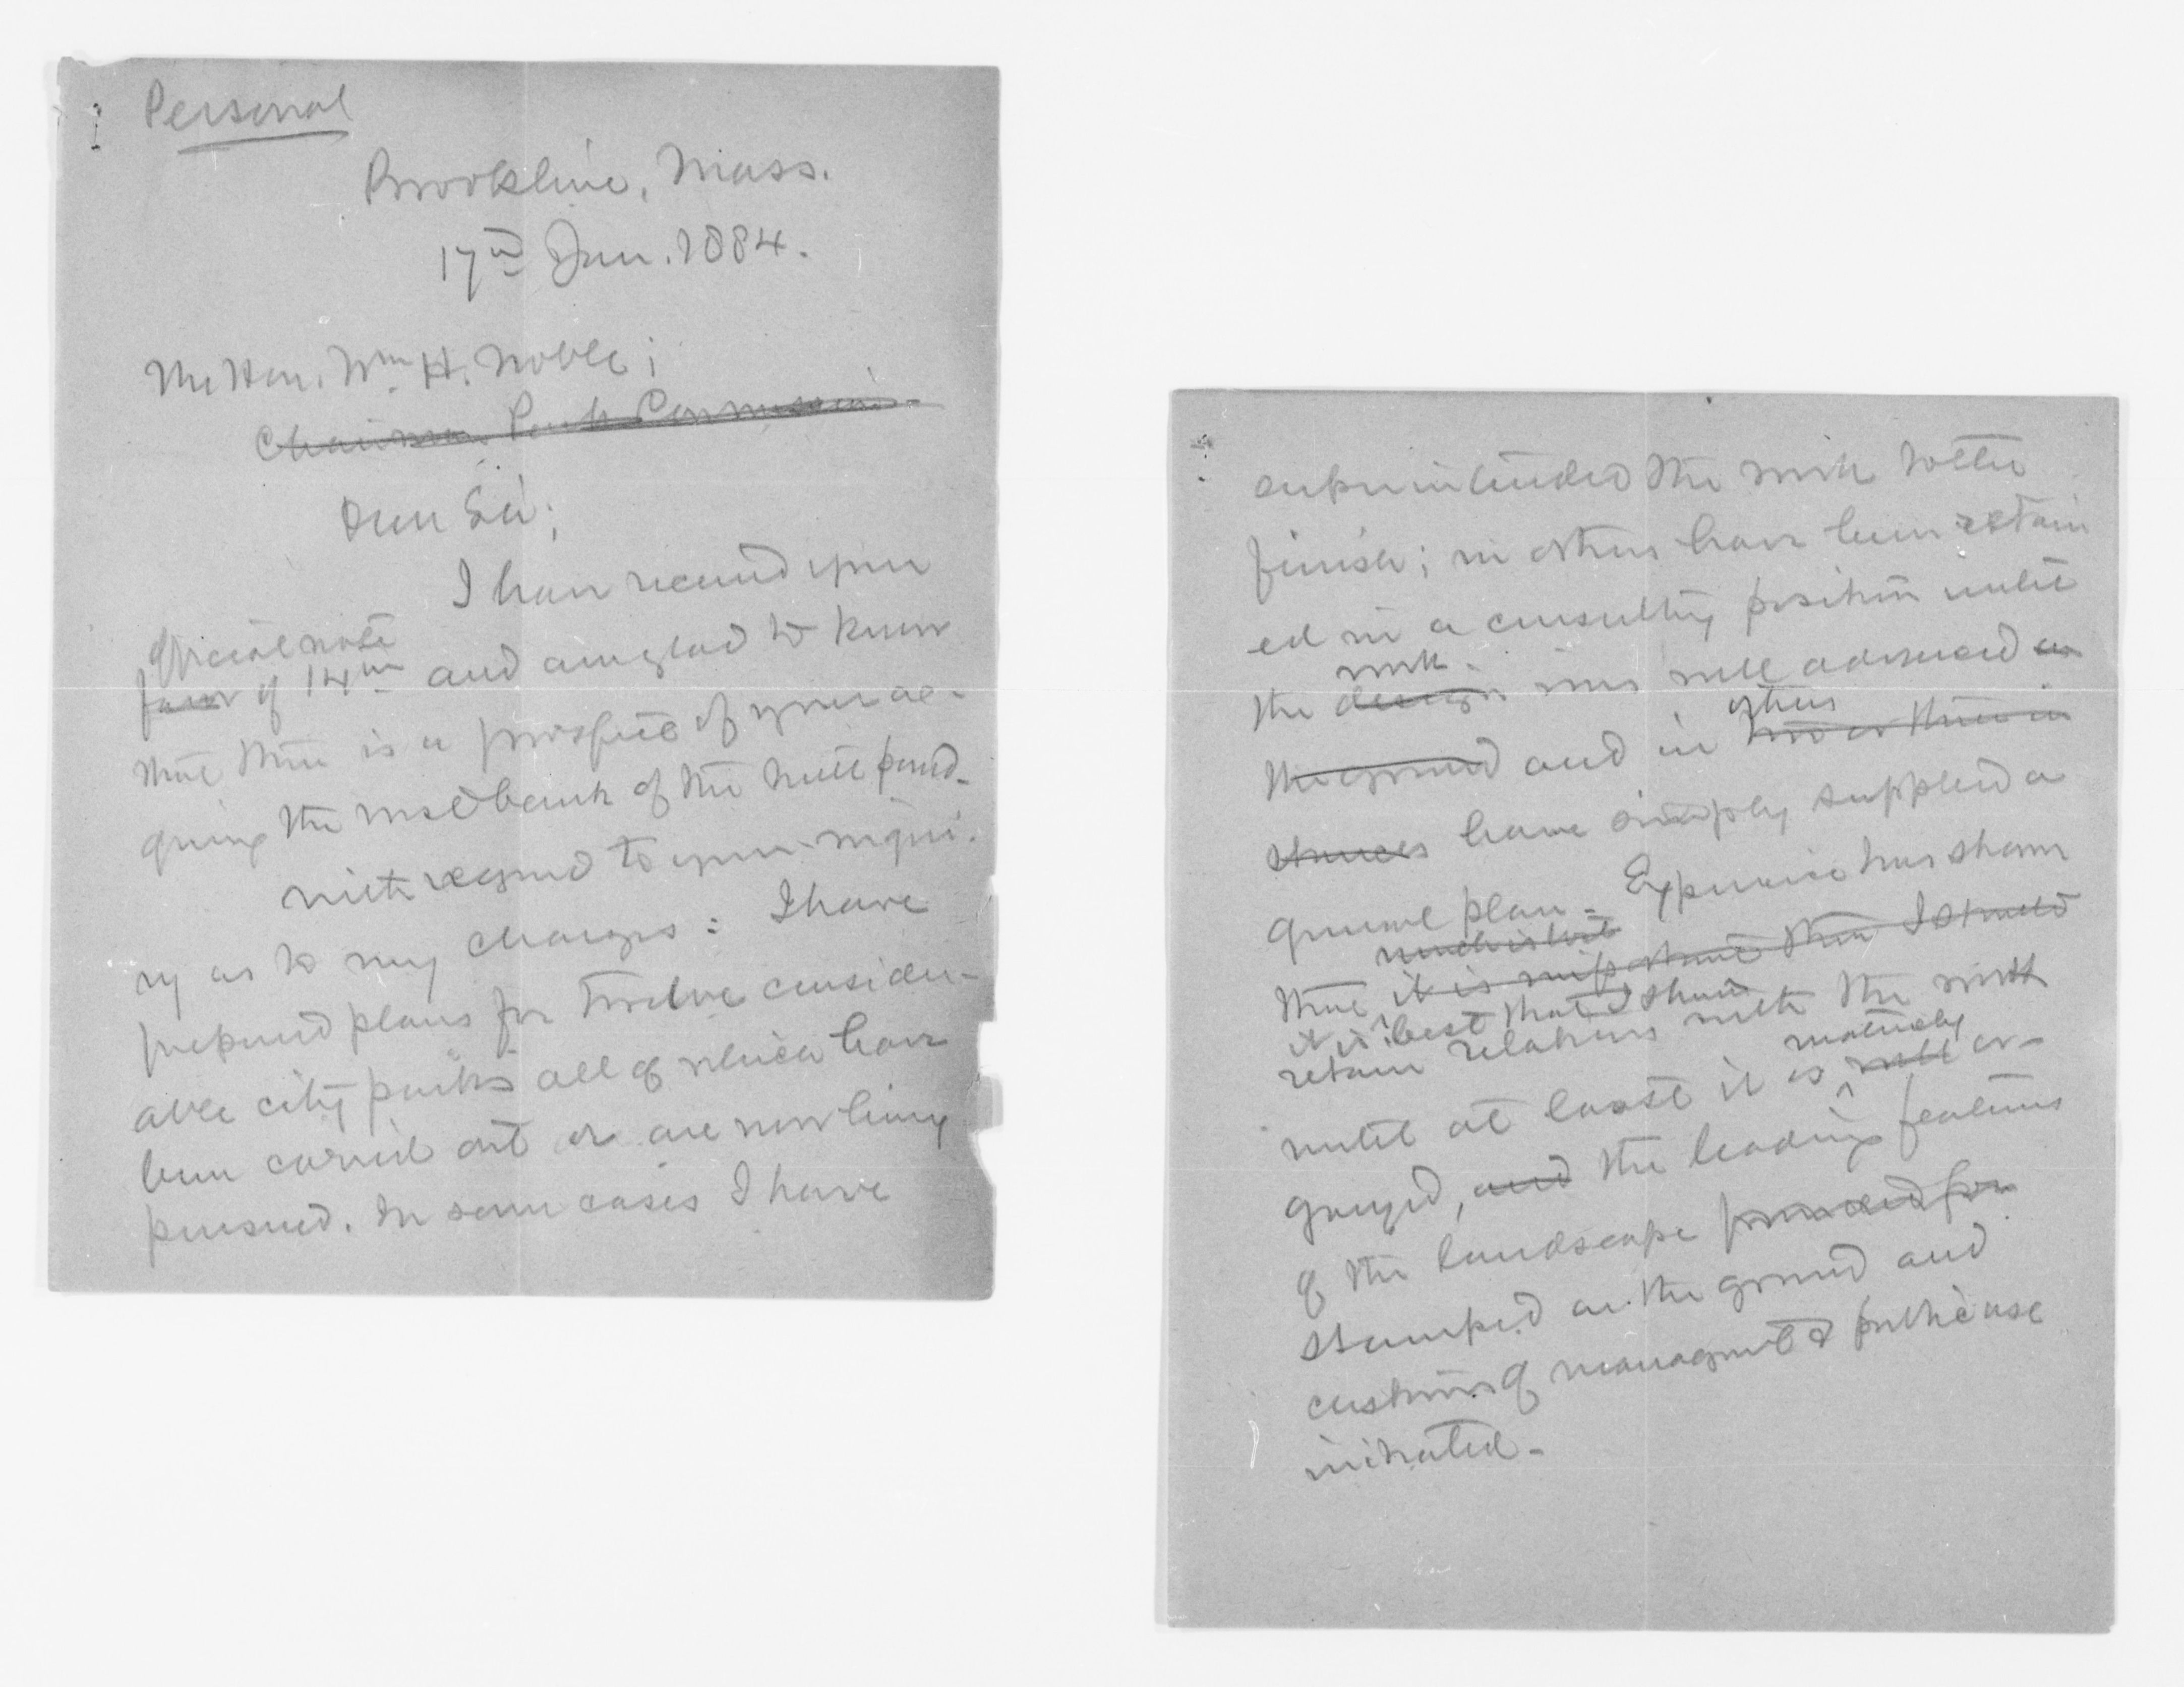 Personal
Brookline, Mass.
17th Jan. 1884.
The Hon. Wm. H. Noble;
Chairman Park Commission.
Dear Sir;
I have received your
official note
favor of 14th and am glad to know
that there is a prospect of your ac-
quiring the west bank of the mill pond.
With regard to your inqui-
ry as to my charges: I have
prepared plans for twelve consider-
able city parks all of which have
been carried out or are now being
pursued. In some cases I have
superintended the work to the
finish; in others have been retain
ed in a consulting position until
work
the design was well advanced on
others
the ground and in two or three in
stances have simply supplied a
general plan. Experience has shown
much is lost
that it is important that I should
it is best that I should
retain relations with the work
maturely
until at least it is well or-
ganized, and the leading features
of the landscape
stamped on the ground and
customs of managment & public use
initiated.